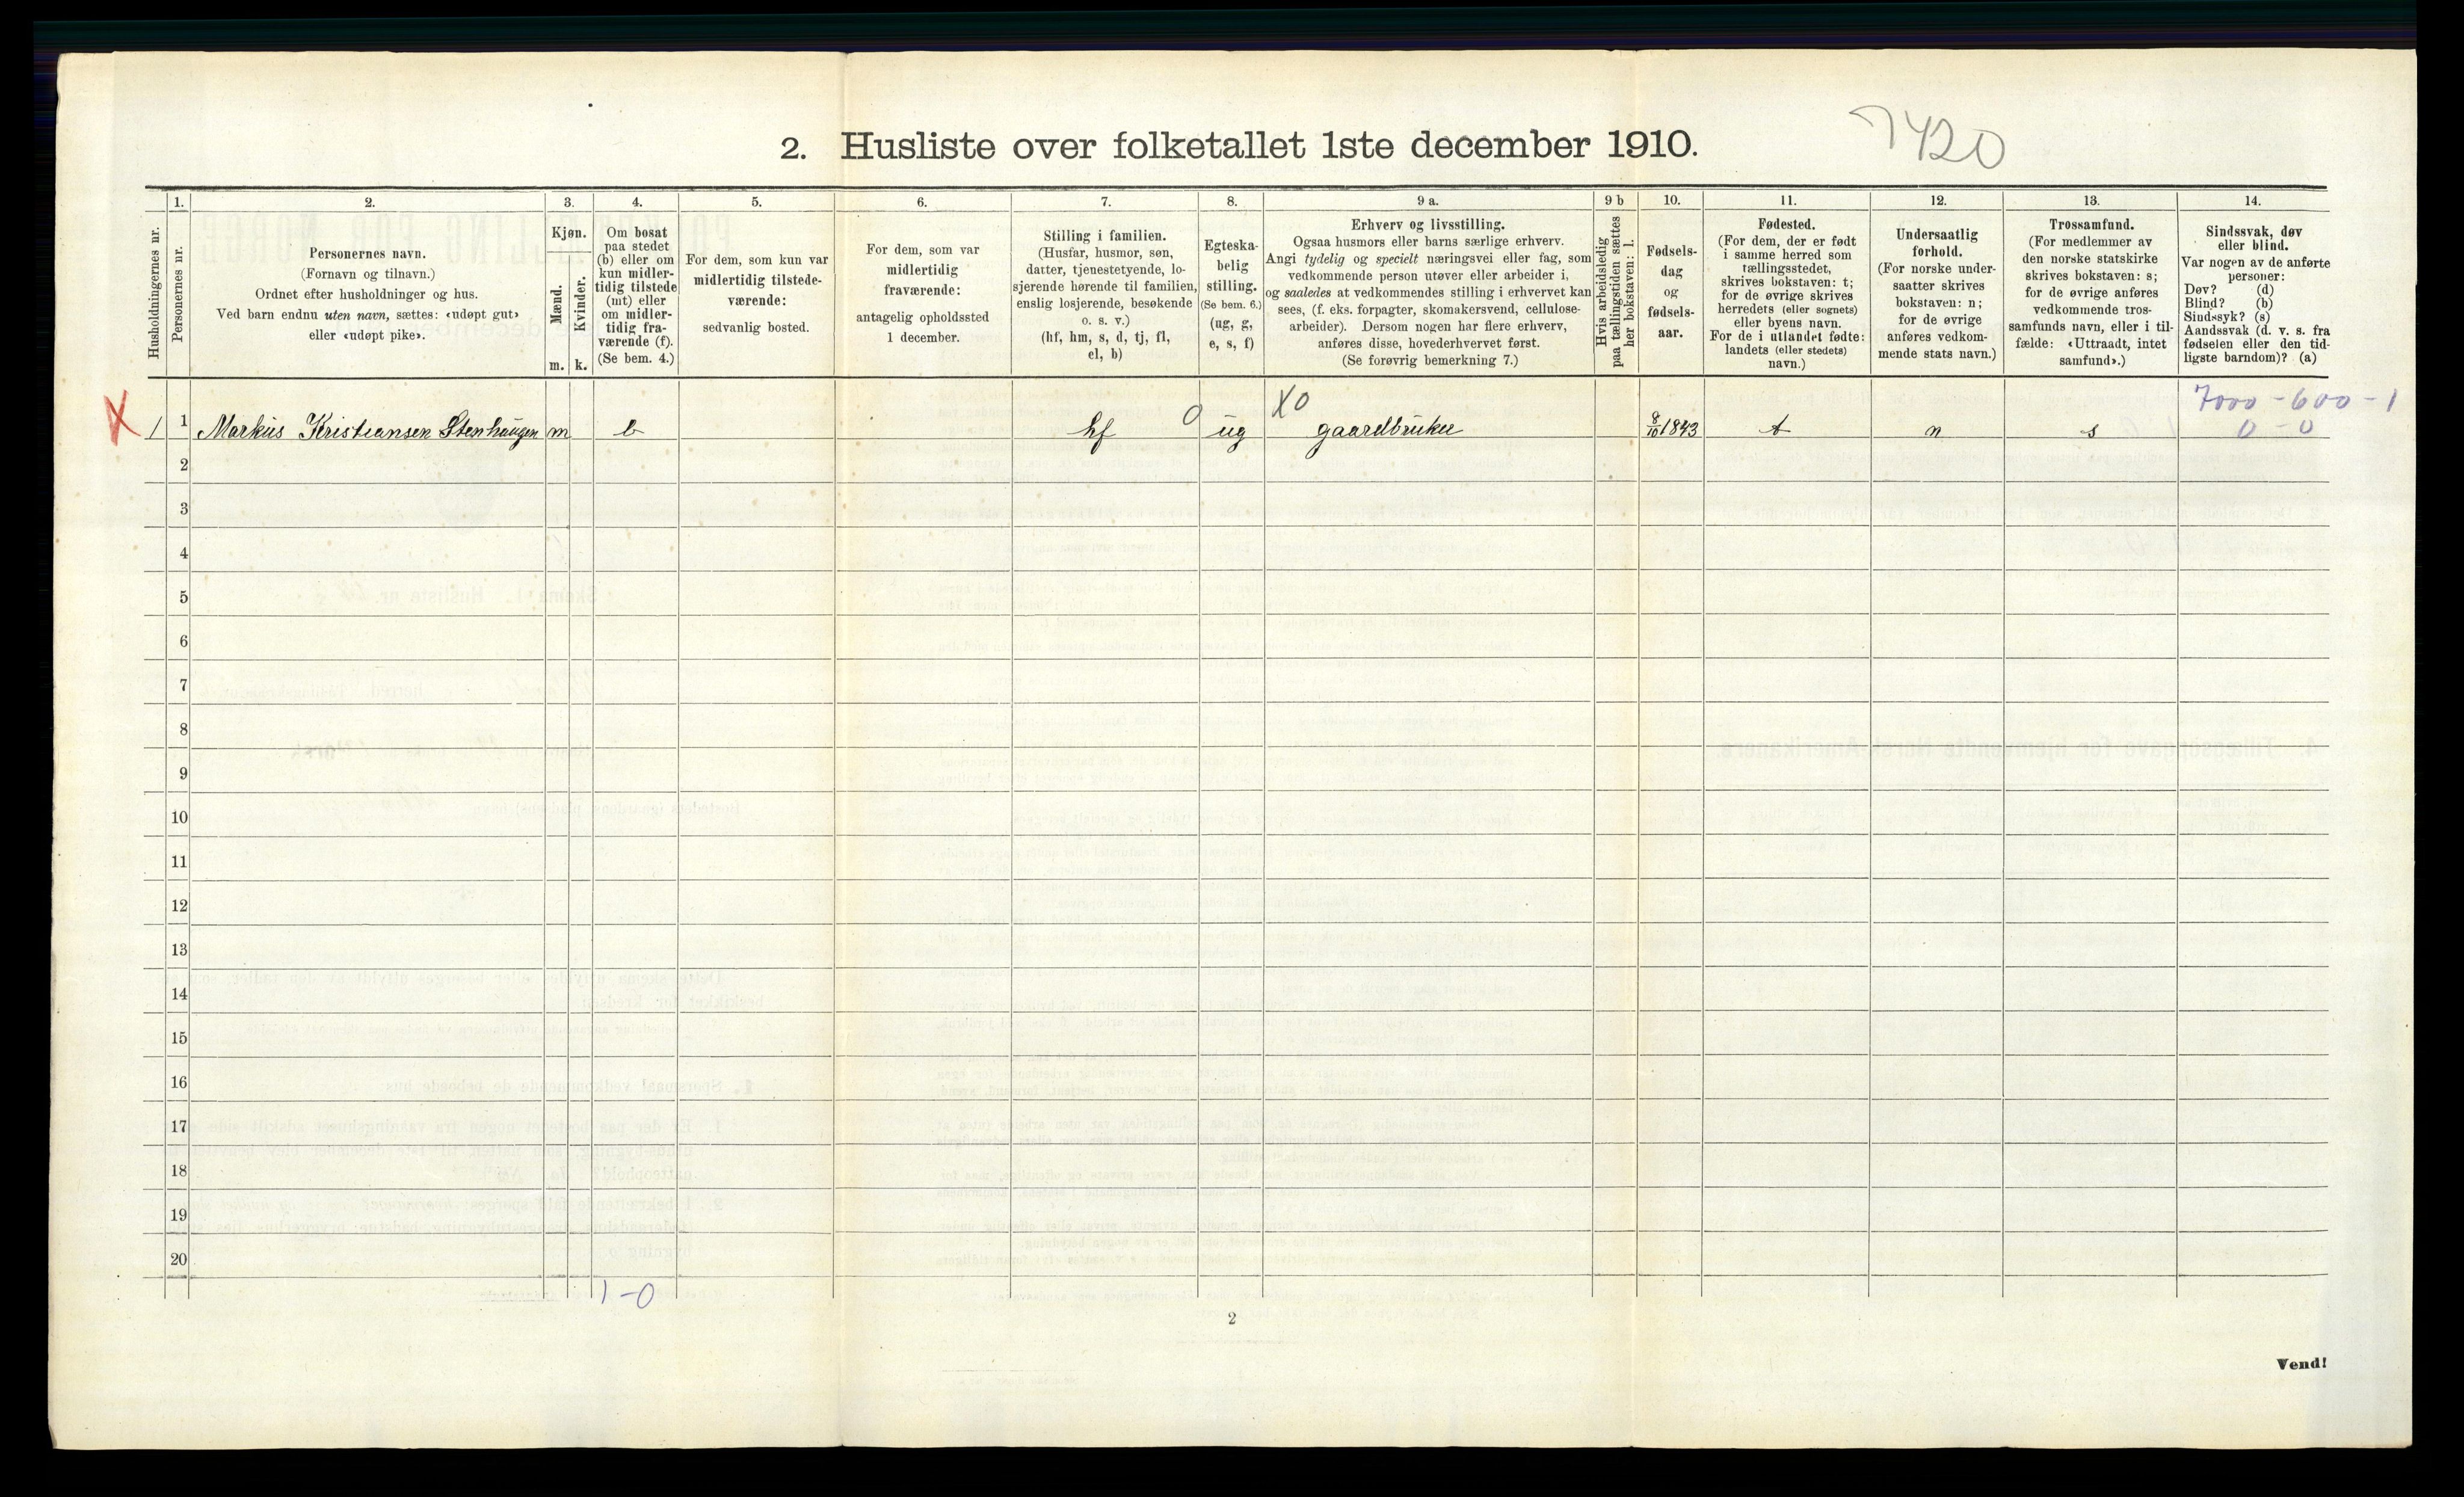 7420
2. Husliste over folketallet 1ste december 1910.
Husholdningernes nr.
1.
Personernes nr.
2.
Personernes navn.
(Fornavn og tilnavn.)
Ordnet efter husholdninger og hus.
Ved barn endnu uten navn, sættes: «udøpt gut»
eller «udøpt pike».
3.
Kjøn.
Mænd.
Kvinder.
m. k.
4.
Om bosat
paa stedet
(b) eller om
kun midler-
tidig tilstede
(mt) eller
om midler-
tidig fra-
værende (f).
(Se bem. 4.)
5.
For dem, som kun var
midlertidig tilstede-
værende:
sedvanlig bosted.
6.
For dem, som var
midlertidig
fraværende:
antagelig opholdssted
1 december.
7.
Stilling i familien.
(Husfar, husmor, søn,
datter, tjenestetyende, lo-
sjerende hørende til familien,
enslig losjerende, besøkende
o. s. v.)
(hf, hm, s, d, tj, fl,
el, b)
8.
Egteska-
belig
stilling.
(Se bem. 6.)
(ug, g,
e, s, f)
9 a.
Erhverv og livsstilling.
Ogsaa husmors eller barns særlige erhverv.
Angi tydelig og specielt næringsvei eller fag, som
vedkommende person utøver eller arbeider i,
og saaledes at vedkommendes stilling i erhvervet kan
sees, (f. eks. forpagter, skomakersvend, cellulose-
arbeider). Dersom nogen har flere erhverv,
anføres disse, hovederhvervet først.
(Se forøvrig bemerkning 7.)
9 b
Hvis arbeidsledig
paa tællingstiden sættes
her bokstaven: l.
10.
Fødsels-
dag
og
fødsels-
aar.
11.
Fødested.
(For dem, der er født
i samme herred som
tællingsstedet,
skrives bokstaven: t;
for de øvrige skrives
herredets (eller sognets)
eller byens navn.
For de i utlandet fødte:
landets (eller stedets)
navn.)
12.
Undersaatlig
forhold.
(For norske under-
saatter skrives
bokstaven: n;
for de øvrige
anføres vedkom-
mende stats navn.)
13.
Trossamfund.
(For medlemmer av
den norske statskirke
skrives bokstaven: s;
for de øvrige anføres
vedkommende tros-
samfunds navn, eller i til-
fælde: «Uttraadt, intet
samfund».)
14.
Sindssvak, døv
eller blind.
Var nogen av de anførte
personer:
Døv? (d)
Blind? (b)
Sindssyk? (s)
Aandssvak (d. v. s. fra
fødselen eller den tid-
ligste barndom)? (a)
7000-600-1
X 0 X0
1 1 Markus Kristiansen Stenhaugen m b hf ug gaardbruker 8/10 1843 t n s 0-0
2
3
4
5
6
7
8
9
10
11
12
13
14
15
16
17
18
19
20
1-0
2
Vend!